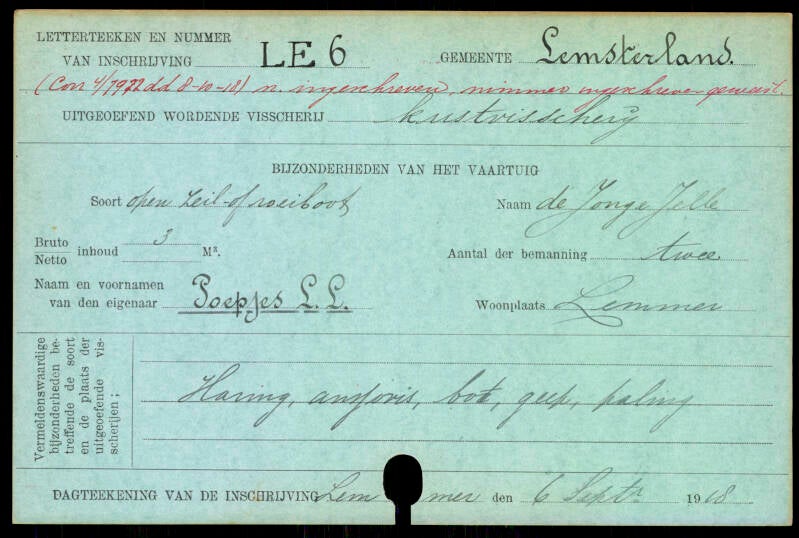 LETTERTEEKEN EN NUMMER
VAN INSCHRIJVING LE 6 GEMEENTE Lemsterland.
(Corr 4/7922 dd 8-10-18) n. ingeschreven, nimmer ingeschreven geweest.
UITGEOEFEND WORDENDE VISSCHERIJ kustvisscherij
BIJZONDERHEDEN VAN HET VAARTUIG
Soort open zeil- of roeiboot Naam de Jonge Jelle
Bruto
Netto inhoud 3 M³. Aantal der bemanning twee
Naam en voornamen
van den eigenaar Poepjes L. L. Woonplaats Lemmer
Vermeldenswaardige
bijzonderheden be-
treffende de soort
en de plaats der
uitgeoefende vis-
scherijen;
Haring, ansjovis, bot, geep, paling
DAGTEEKENING VAN DE INSCHRIJVING Lemmer den 6 Septr 1918